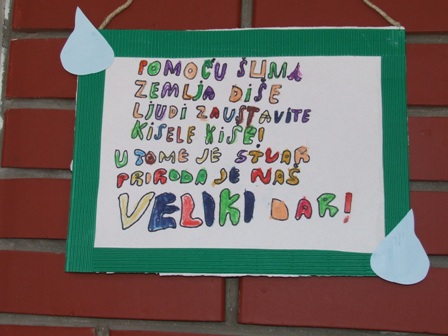 POMOĆU ŠUMA
ZEMLJA DIŠE
LJUDI ZAUSTAVITE
KISELE KIŠE!
U TOME JE STVAR
PRIRODA JE NAŠ
VELIKI DAR!